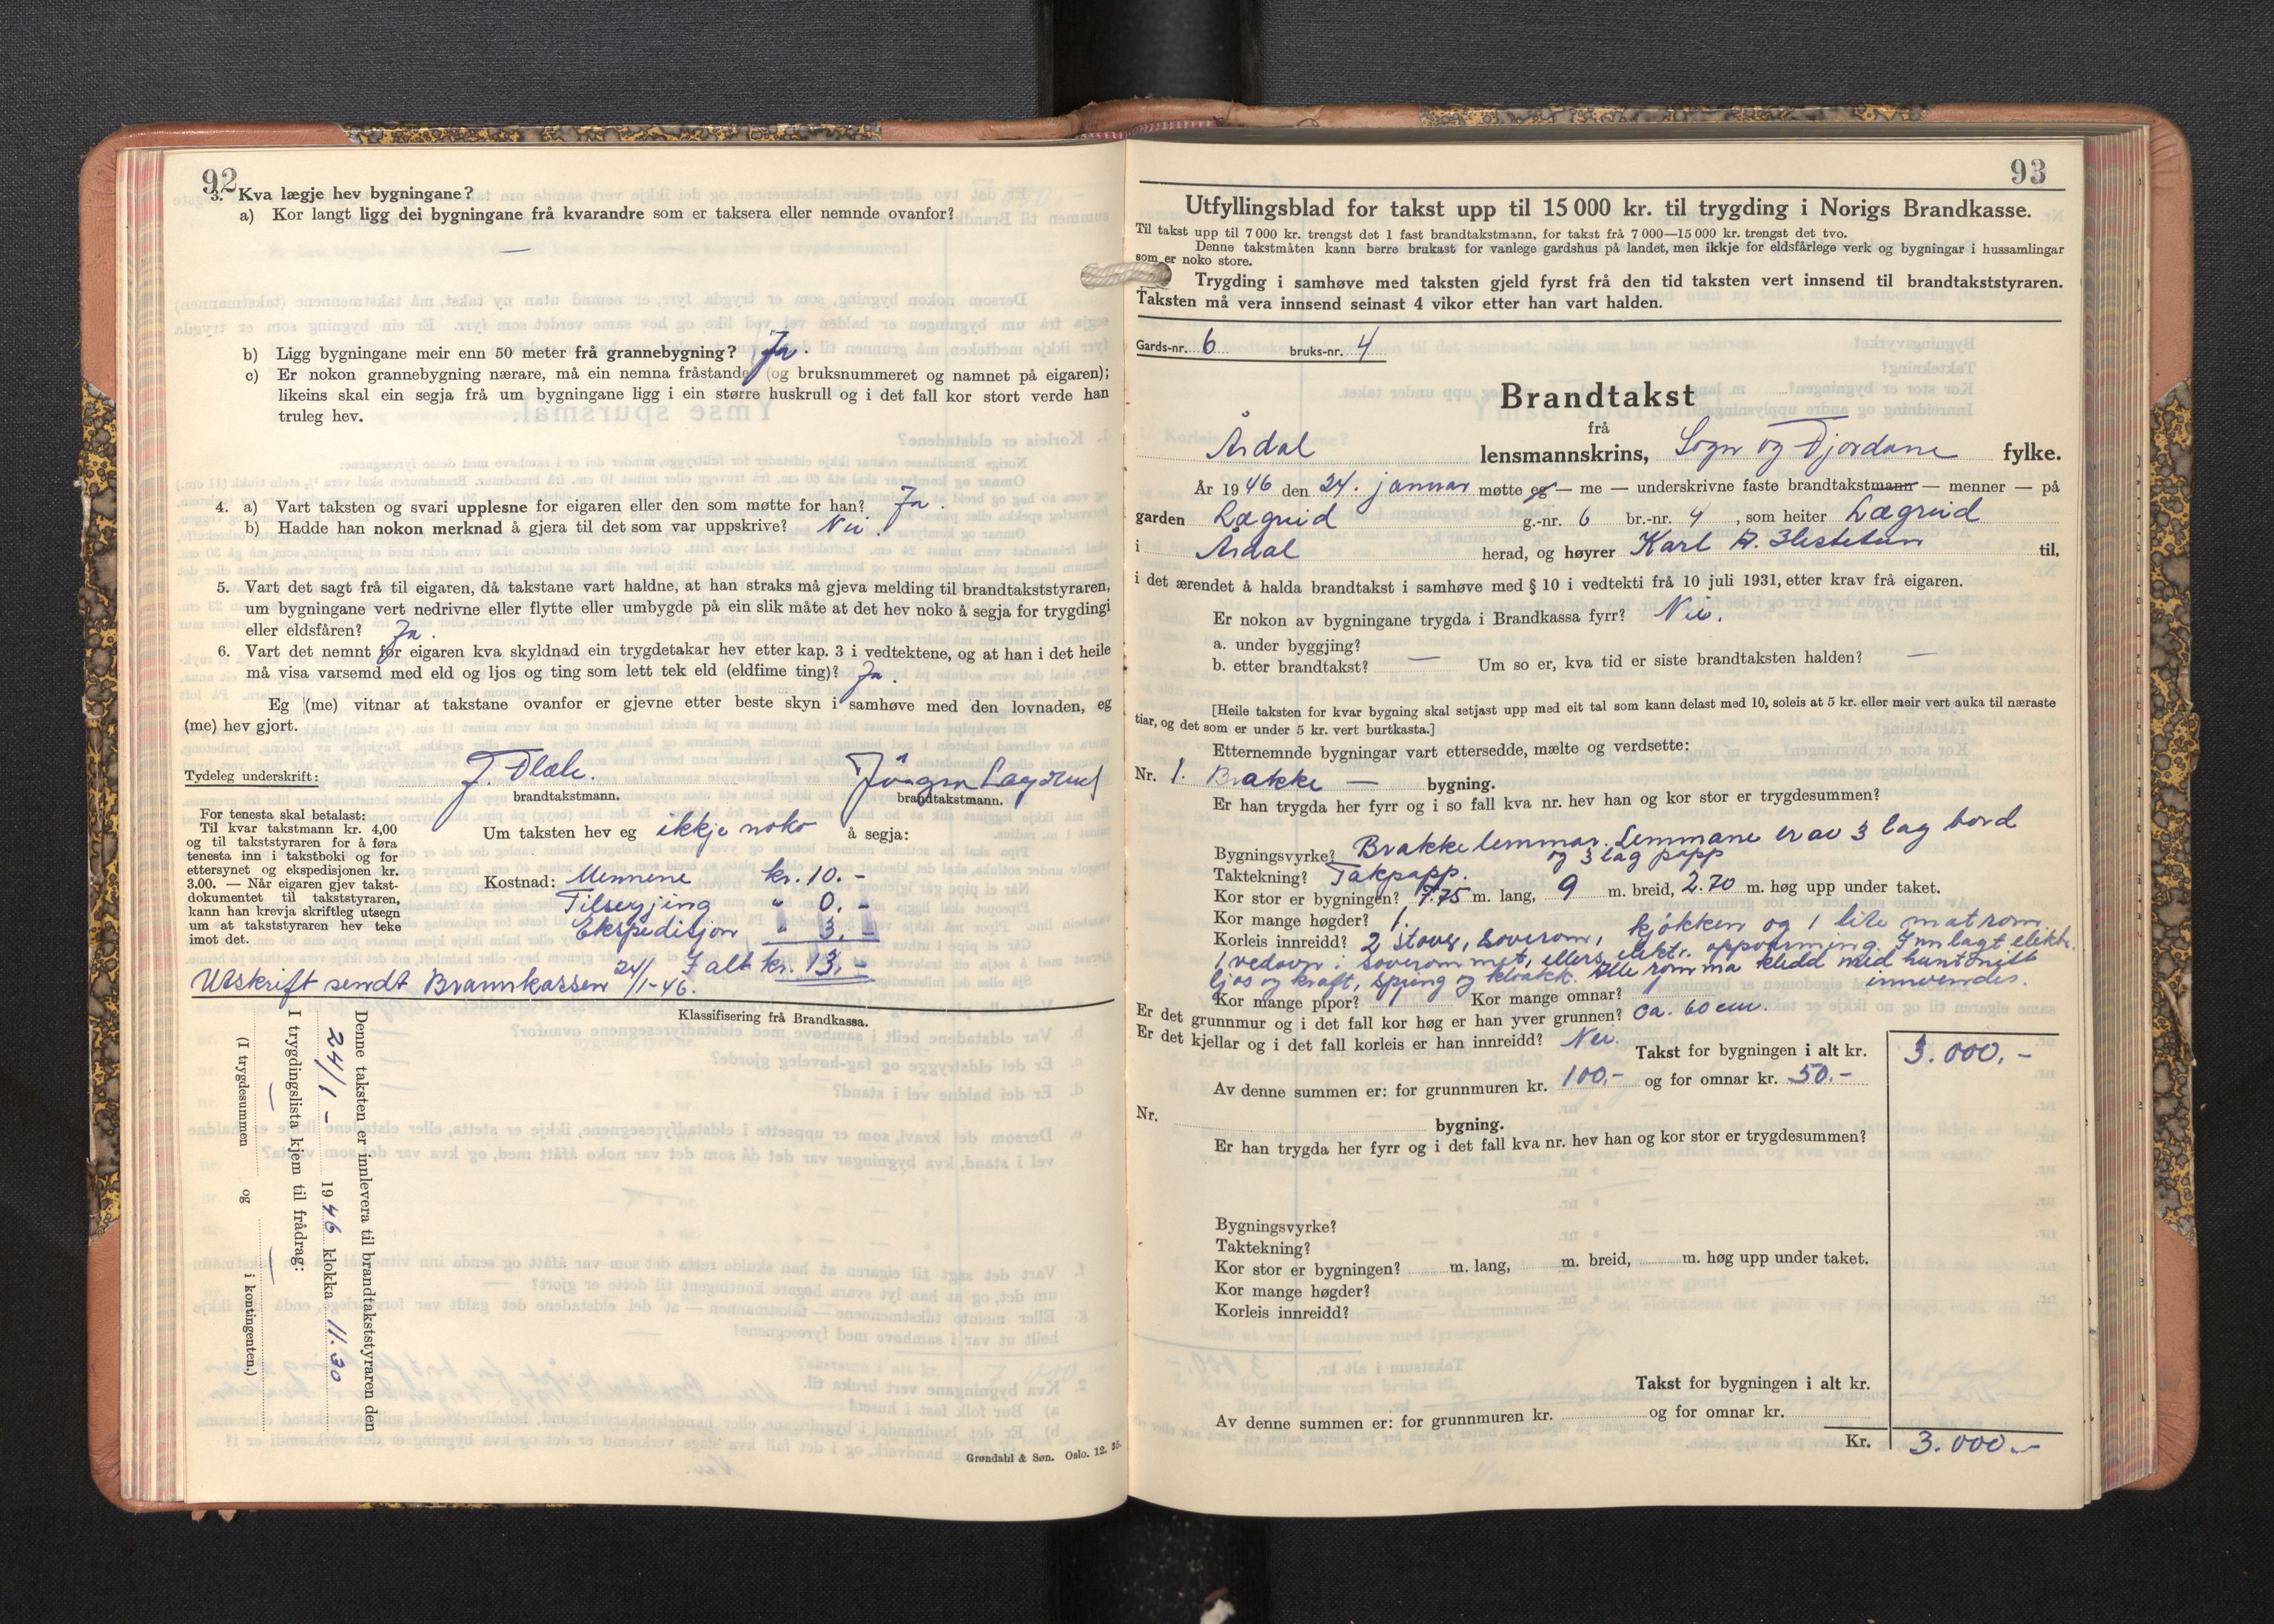 92
3. Kva lægje hev bygningane?
a) Kor langt ligg dei bygningane frå kvarandre som er taksera eller nemnde ovanfor?
—
b) Ligg bygningane meir enn 50 meter frå grannebygning? Ja.
c) Er nokon grannebygning nærare, må ein nemna fråstande (og bruksnummeret og namnet på eigaren);
likeins skal ein segja frå um bygningane ligg i ein større huskrull og i det fall kor stort verde han
truleg hev.
4. a) Vart taksten og svari upplesne for eigaren eller den som møtte for han? Ja.
b) Hadde han nokon merknad å gjera til det som var uppskrive? Nei.
5. Vart det sagt frå til eigaren, då takstane vart haldne, at han straks må gjeva melding til brandtakststyraren,
um bygningane vert nedrivne eller flytte eller umbygde på ein slik måte at det hev noko å segja for trygdingi
eller eldsfåren? Ja.
6. Vart det nemnt for eigaren kva skyldnad ein trygdetakar hev etter kap. 3 i vedtektene, og at han i det heile
må visa varsemd med eld og ljos og ting som lett tek eld (eldfime ting)? Ja.
Eg (me) vitnar at takstane ovanfor er gjevne etter beste skyn i samhøve med den lovnaden, eg
(me) hev gjort.
Tydeleg underskrift: J.
brandtakstmann. brandtakstmann.
For tenesta skal betalast:
Til kvar takstmann kr. 4,00
og til takststyraren for å føra
tenesta inn i takstboki og for
ettersynet og ekspedisjonen kr.
3.00. — Når eigaren gjev takst-
dokumentet til takststyraren,
kann han krevja skriftleg utsegn
um at takststyraren hev teke
imot det.
Um taksten hev eg ikkje noko å segja:
Kostnad: Mennene kr. 10.-
Tilsegjing " 0.-
Ekspedisjon " 3.-
I alt kr. 13.-
Utskrift sendt Brannkassen 24/1-46.
Klassifisering frå Brandkassa.
Denne taksten er innlevera til brandtakststyraren den
24/1 - 1946 klokka 11.30
I trygdingslista kjem til frådrag:
(I trygdesummen — og — i kontingenten.)
Grøndahl & Søn. Oslo. 12. 35.
93
Utfyllingsblad for takst upp til 15 000 kr. til trygding i Norigs Brandkasse.
Til takst upp til 7 000 kr. trengst det 1 fast brandtakstmann, for takst frå 7 000—15 000 kr. trengst det tvo.
Denne takstmåten kann berre brukast for vanlege gardshus på landet, men ikkje for eldsfårlege verk og bygningar i hussamlingar
som er noko store.
Trygding i samhøve med taksten gjeld fyrst frå den tid taksten vert innsend til brandtakststyraren.
Taksten må vera innsend seinast 4 vikor etter han vart halden.
Gards-nr. 6 bruks-nr. 4
Brandtakst
frå
Årdal lensmannskrins, Sogn og Fjordane fylke.
År 1946 den 24. januar møtte eg — me — underskrivne faste brandtakstmann — menner — på
garden Lægreid g.-nr. 6 br.-nr. 4, som heiter Lægreid
i Årdal herad, og høyrer Karl A. Hestetun til,
i det ærendet å halda brandtakst i samhøve med § 10 i vedtekti frå 10 juli 1931, etter krav frå eigaren.
Er nokon av bygningane trygda i Brandkassa fyrr? Nei.
a. under byggjing?
b. etter brandtakst? — Um so er, kva tid er siste brandtaksten halden? —
[Heile taksten for kvar bygning skal setjast upp med eit tal som kann delast med 10, soleis at 5 kr. eller meir vert auka til næraste
tiar, og det som er under 5 kr. vert burtkasta.]
Etternemnde bygningar vart ettersedde, mælte og verdsette:
Nr. 1. Brakke — bygning.
Er han trygda her fyrr og i so fall kva nr. hev han og kor stor er trygdesummen?
Bygningsvyrke? Brakkelemmar. Lemmane er av 3 lag bord
og 3 lag papp
Taktekning? Takpapp.
Kor stor er bygningen? 7.75 m. lang, 9 m. breid, 2.70 m. høg upp under taket.
Kor mange høgder? 1.
Korleis innreidd? 2 stover, soverom, kjøkken og 1 lite matrom.
1 vedovn i soverommet, ellers elektr. oppvarming. Innlagt elektr.
ljos og kraft, spring og kloakk. Alle romma kledd med huntonitt
innvendes.
Kor mange pipor? Kor mange omnar?
Er det grunnmur og i det fall kor høg er han yver grunnen? ca. 60 cm.
Er det kjellar og i det fall korleis er han innreidd? Nei.
Takst for bygningen i alt kr. 3.000.-
Av denne summen er: for grunnmuren kr. 100.- og for omnar kr. 50.-
Nr. bygning.
Er han trygda her fyrr og i det fall kva nr. hev han og kor stor er trygdesummen?
Bygningsvyrke?
Taktekning?
Kor stor er bygningen? m. lang, m. breid, m. høg upp under taket.
Kor mange høgder?
Korleis innreidd?
Takst for bygningen i alt kr.
Av denne summen er: for grunnmuren kr. og for omnar kr.
Kr. 3.000.-